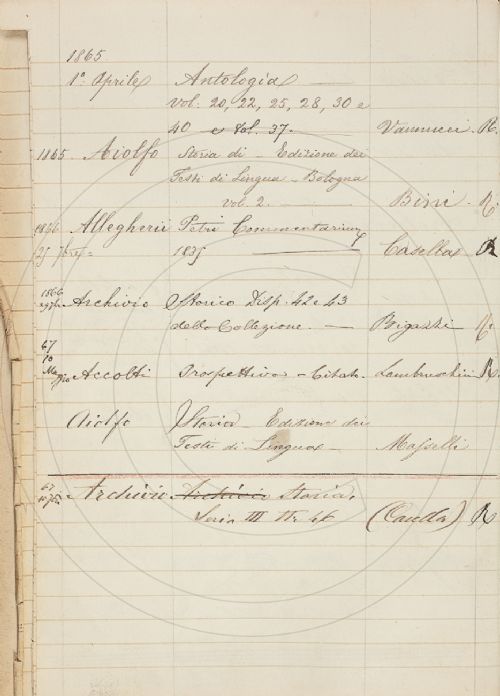 1865
1º Aprile Antologia
Vol. 20, 22, 25, 28, 30 e
40 e Vol. 37. Vannucci. R.
1865 Aiolfo Storia di - Edizione dei
Testi di Lingua - Bologna
vol. 2. Bini. R.
1866 Allegherii Petri Commentarium
25 7bre 1835 Casella R
1866 Archivio Storico Disp. 42 e 43
della Collezione. Bigazzi R.
67
10
Maggio Accolti Prospettiva - Citato. Lambruschini R.
Aiolfo Storia - Edizione dei
Testi di Lingua Masselli
67
Archivio Archivio Storico,
Serie III (Casella) R